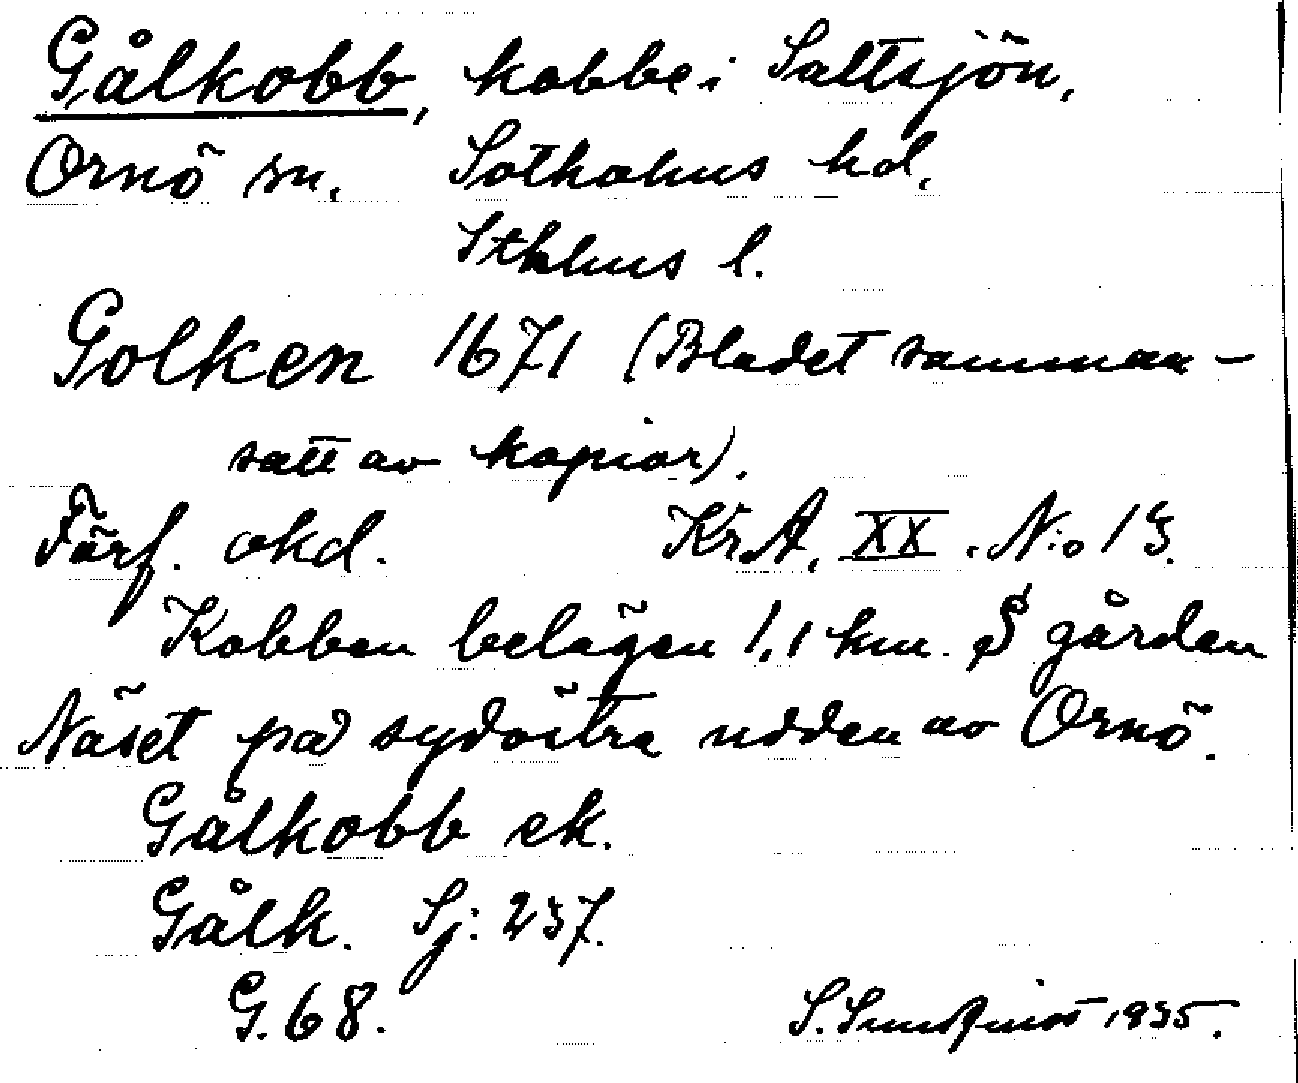 Gålkobb, kobbe i Saltsjön,
Ornö sn. Sotholms hd.
Sthlms l.
Golken 1671 (Bladet samman-
satt av kopior).
Förf. okd. Kr.A. XX. N:o 13.
Kobben belägen 1,1 km. S gården
Näset på sydöstra udden av Ornö.
Gålkobb ek.
Gålk. Sj: 237.
G. 68. S. Sundqvist 1935.